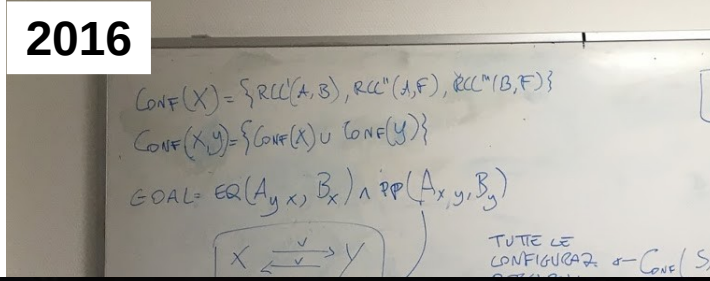 2016
CONF(X) = {RCC'(A,B), RCC"(A,F), RCC'''(B,F)}
CONF(X,Y)={CONF(X) ∪ CONF(Y)}
GOAL= EQ(A_y x, B_x) ∧ PP(A_x,y, B_y)
X ⇄ Y
v
v
TUTTE LE
CONFIGURAZ. CONF( S,